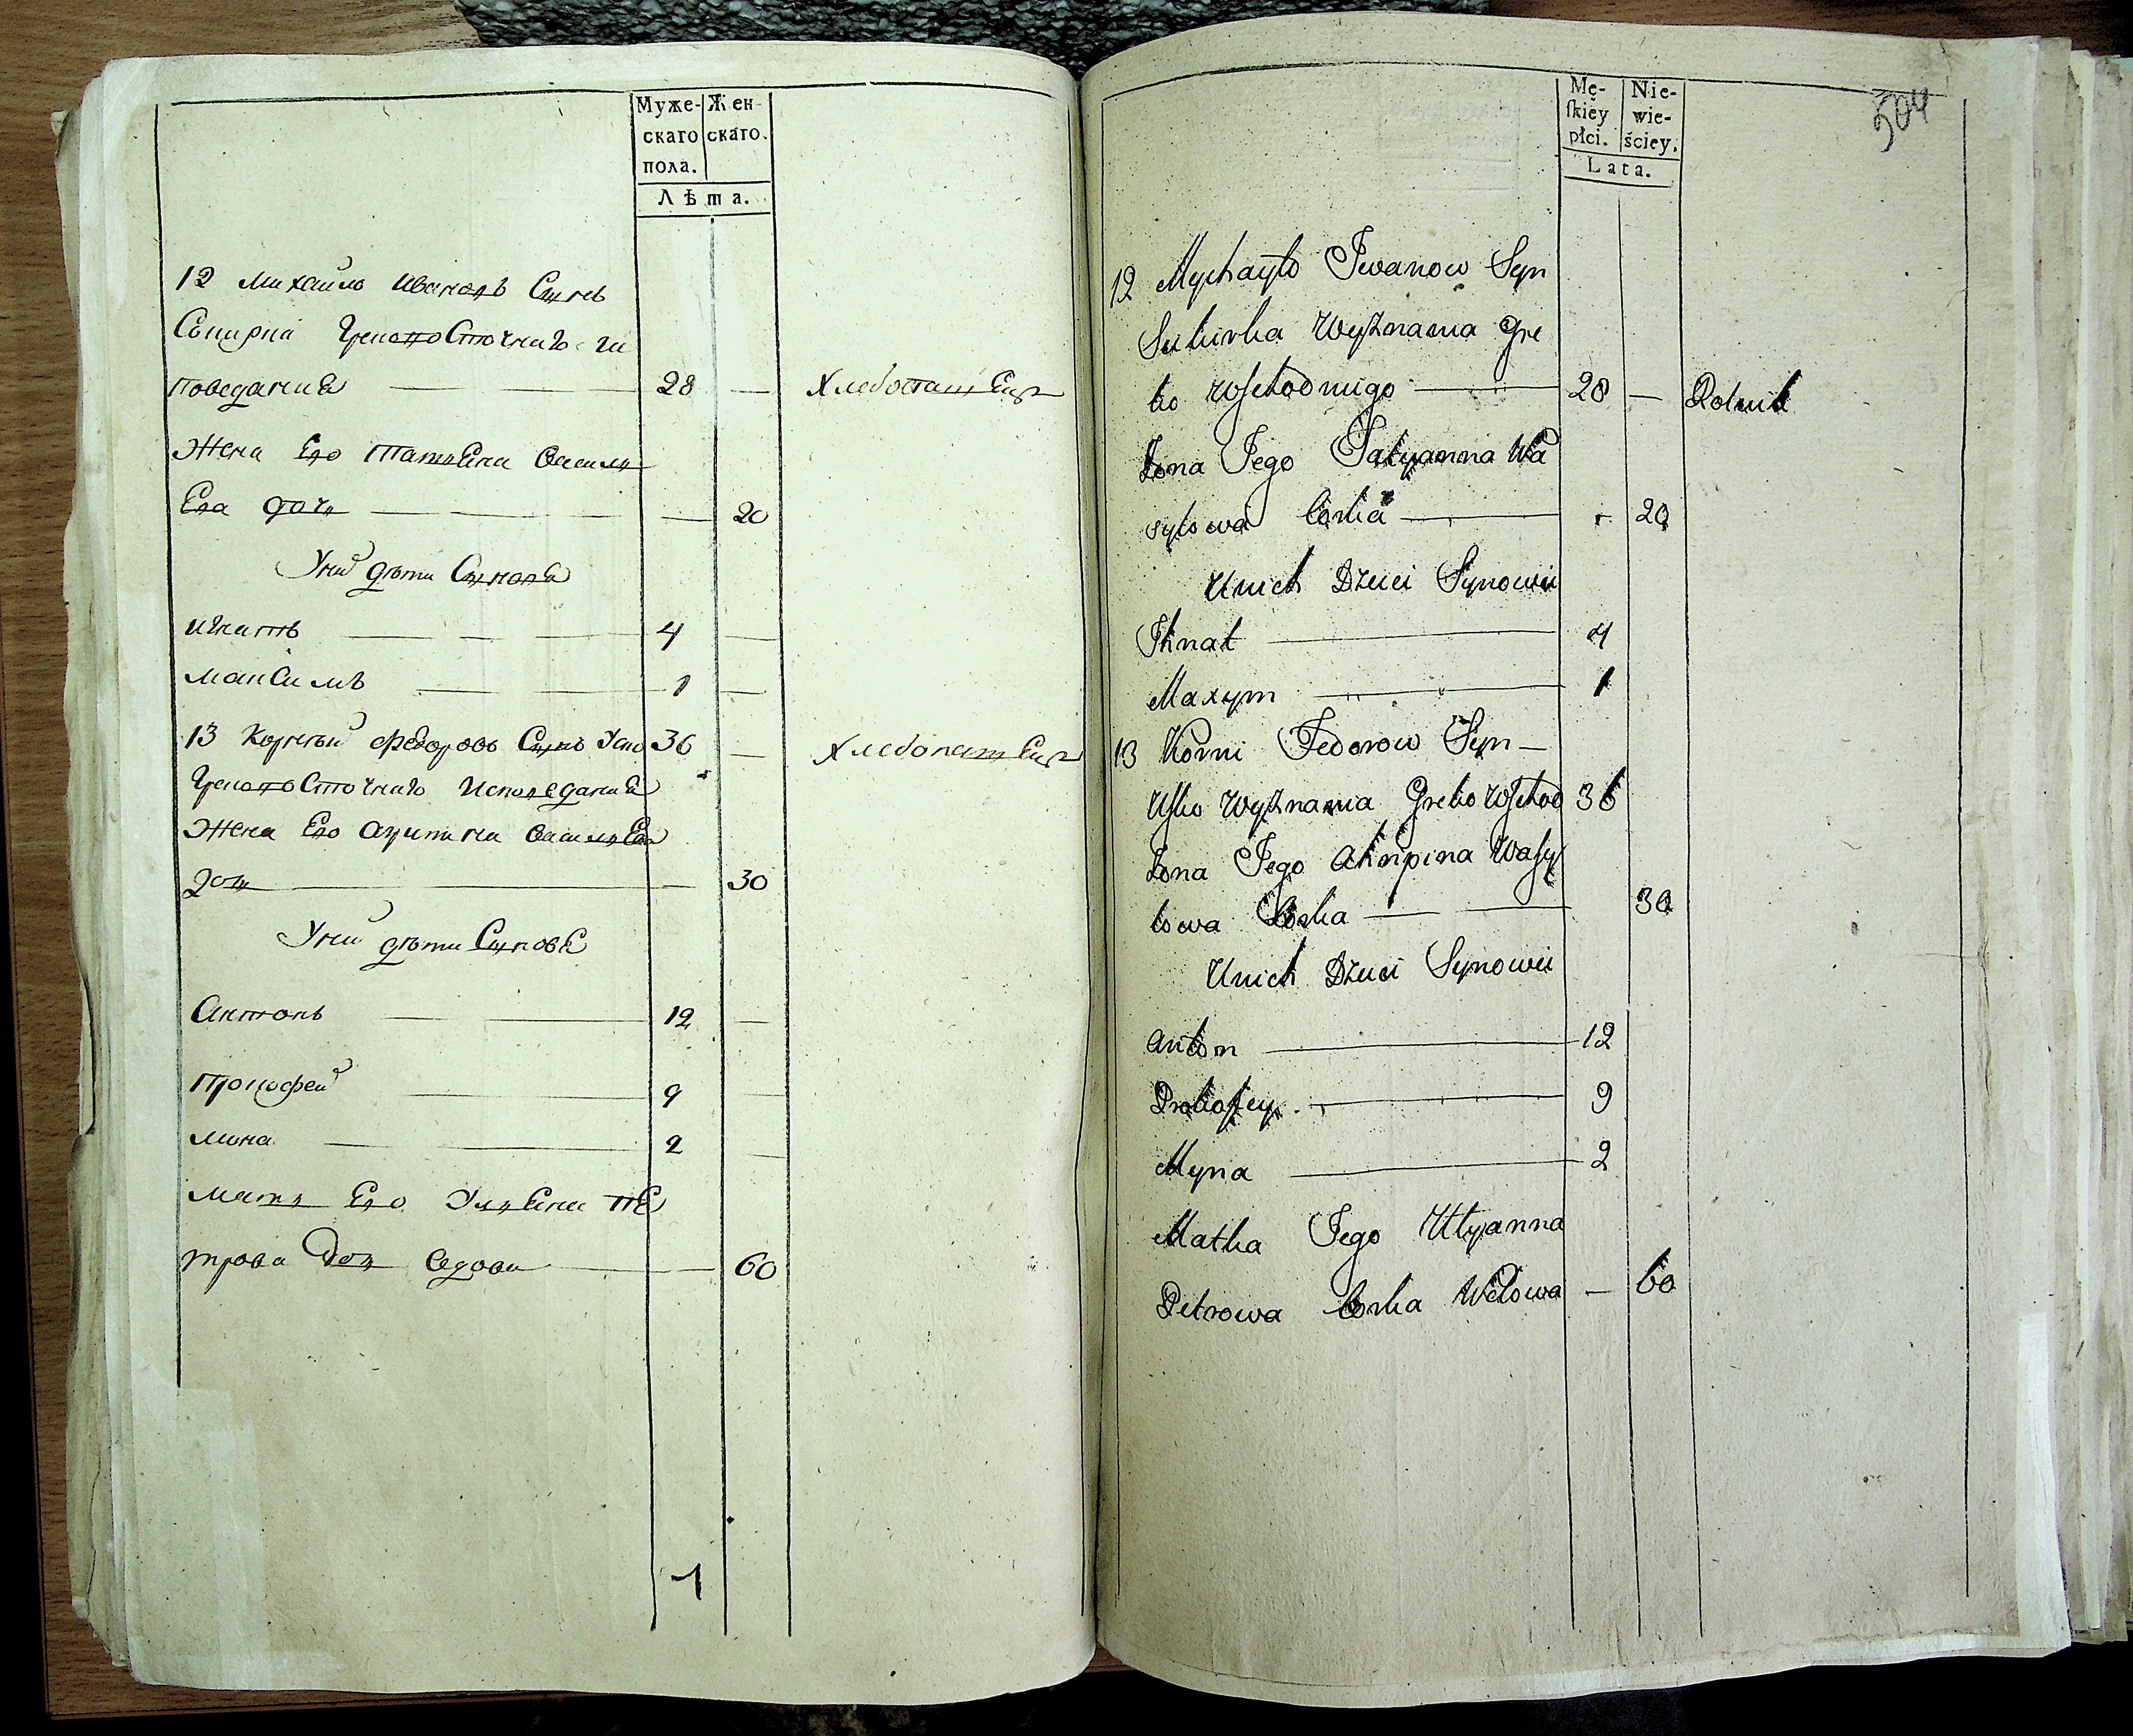 Муже-
скаго
пола.
Жен-
скаго.
Лѣта.
12 Михайло Ивановъ Сынъ
Сокирка Грековосточнаго ис
поведания 28 — Хлебопашецъ
Жена Его Татьяна Василь
Ева дочь — 20
У них дѣти Сыновья
Игнатъ 4 —
Максимъ 1 —
13 Корнѣй Федоровъ Сынъ Усъ 36 — Хлебопашецъ
Грековосточнаго Исповедания
Жена Его Агрипина Васильева
дочь — 30
У них дѣти Сыновья
Антонъ 12 —
Прокофей 9 —
Мина 2 —
Мать Его Ульяна Пе
трова Дочь вдова — 60
1
504
Mę-
skiey
płci.
Nie-
wie-
ściey.
Lata.
12 Mychayło Iwanow Syn
Sukirka Wyznania Gre
ko Wschodniego 28 — Rolnik
Żona Jego Tatyanna Wa
sylowa Corka 20
U nich Dzieci Synowie
Ihnat 4
Maxym 1
13 Korni Fedorow Syn —
Usko Wyznania Greko Wschod 36
Żona Jego Ahripina Wasy
lowa Corka 30
U nich Dzieci Synowie
Anton 12
Prokofey 9
Myna 2
Matka Jego Ulyanna
Petrowa Corka Wdowa — 60